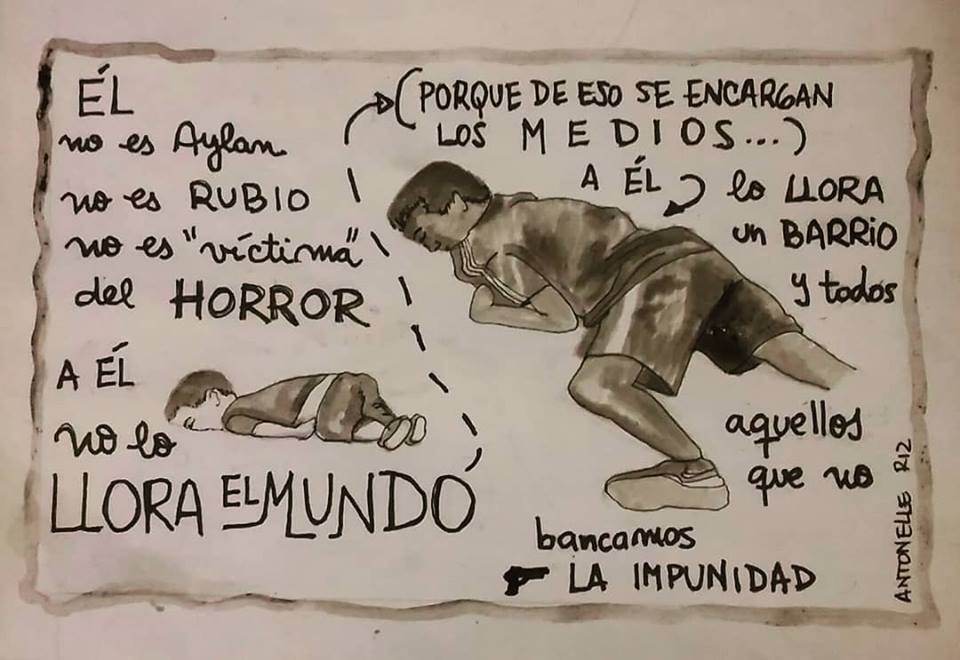 ÉL
no es Aylan
no es RUBIO
no es "víctima"
del HORROR
A ÉL
no lo
LLORA EL MUNDO
(PORQUE DE ESO SE ENCARGAN
LOS MEDIOS...)
A ÉL lo LLORA
un BARRIO
y todos
aquellos
que no
bancamos
LA IMPUNIDAD
ANTONELLE RIZ